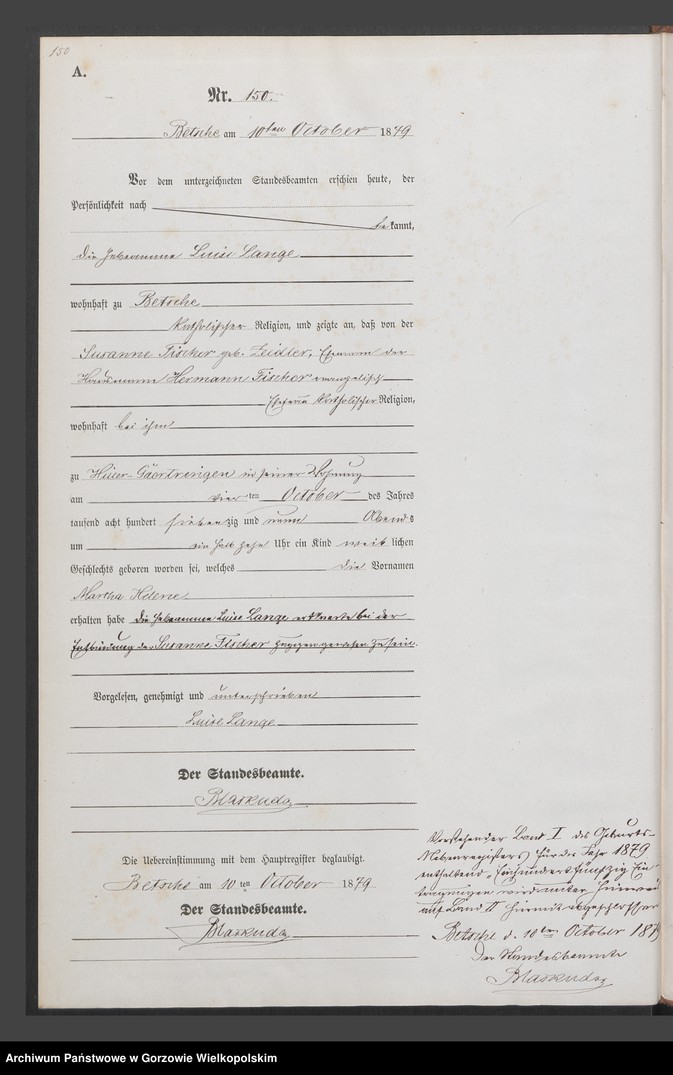 150
A.
Nr. 150.
Betsche am 10ten October 1879
Vor dem unterzeichneten Standesbeamten erschien heute, der
Persönlichkeit nach
bekannt,
die Hebeamme Luise Lange
wohnhaft zu Betsche
katholischer Religion, und zeigte an, daß von der
Susanne Fischer geb. Zeidler, Ehefrau des
Hermann Fischer evangelisch
Ehefrau katholischer Religion,
wohnhaft bei ihm
zu in seiner Wohnung
am vier ten October des Jahres
tausend acht hundert siebenzig und neun Abends
um ein halb zehn Uhr ein Kind weiblichen
Geschlechts geboren worden sei, welches die Vornamen
Martha Helene
erhalten habe die Hebeamme Luise Lange erklaerte bei der
Entbindung der Susanne Fischer zugegen gewesen zu sein.
Vorgelesen, genehmigt und unterschrieben
Luise Lange
Der Standesbeamte.
Blaskuda
Die Uebereinstimmung mit dem Hauptregister beglaubigt.
Betsche am 10 ten October 1879
Der Standesbeamte.
Blaskuda
Vorstehender Band I des Geburts-
Nebenregisters für das Jahr 1879
enthaltend Einhundertfünfzig Ein-
tragungen wird unter
auf Band II hiermit abgeschlossen
Betsche d. 10ten October 1879
Der Standesbeamte
Blaskuda
Archiwum Państwowe w Gorzowie Wielkopolskim